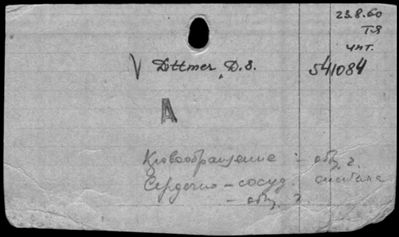 23.8.60
Т-8
чит.
V Dittmer, D.S. 541084
А
Кровообращение - общ. г.
Сердечно-сосуд. система
- общ. г.